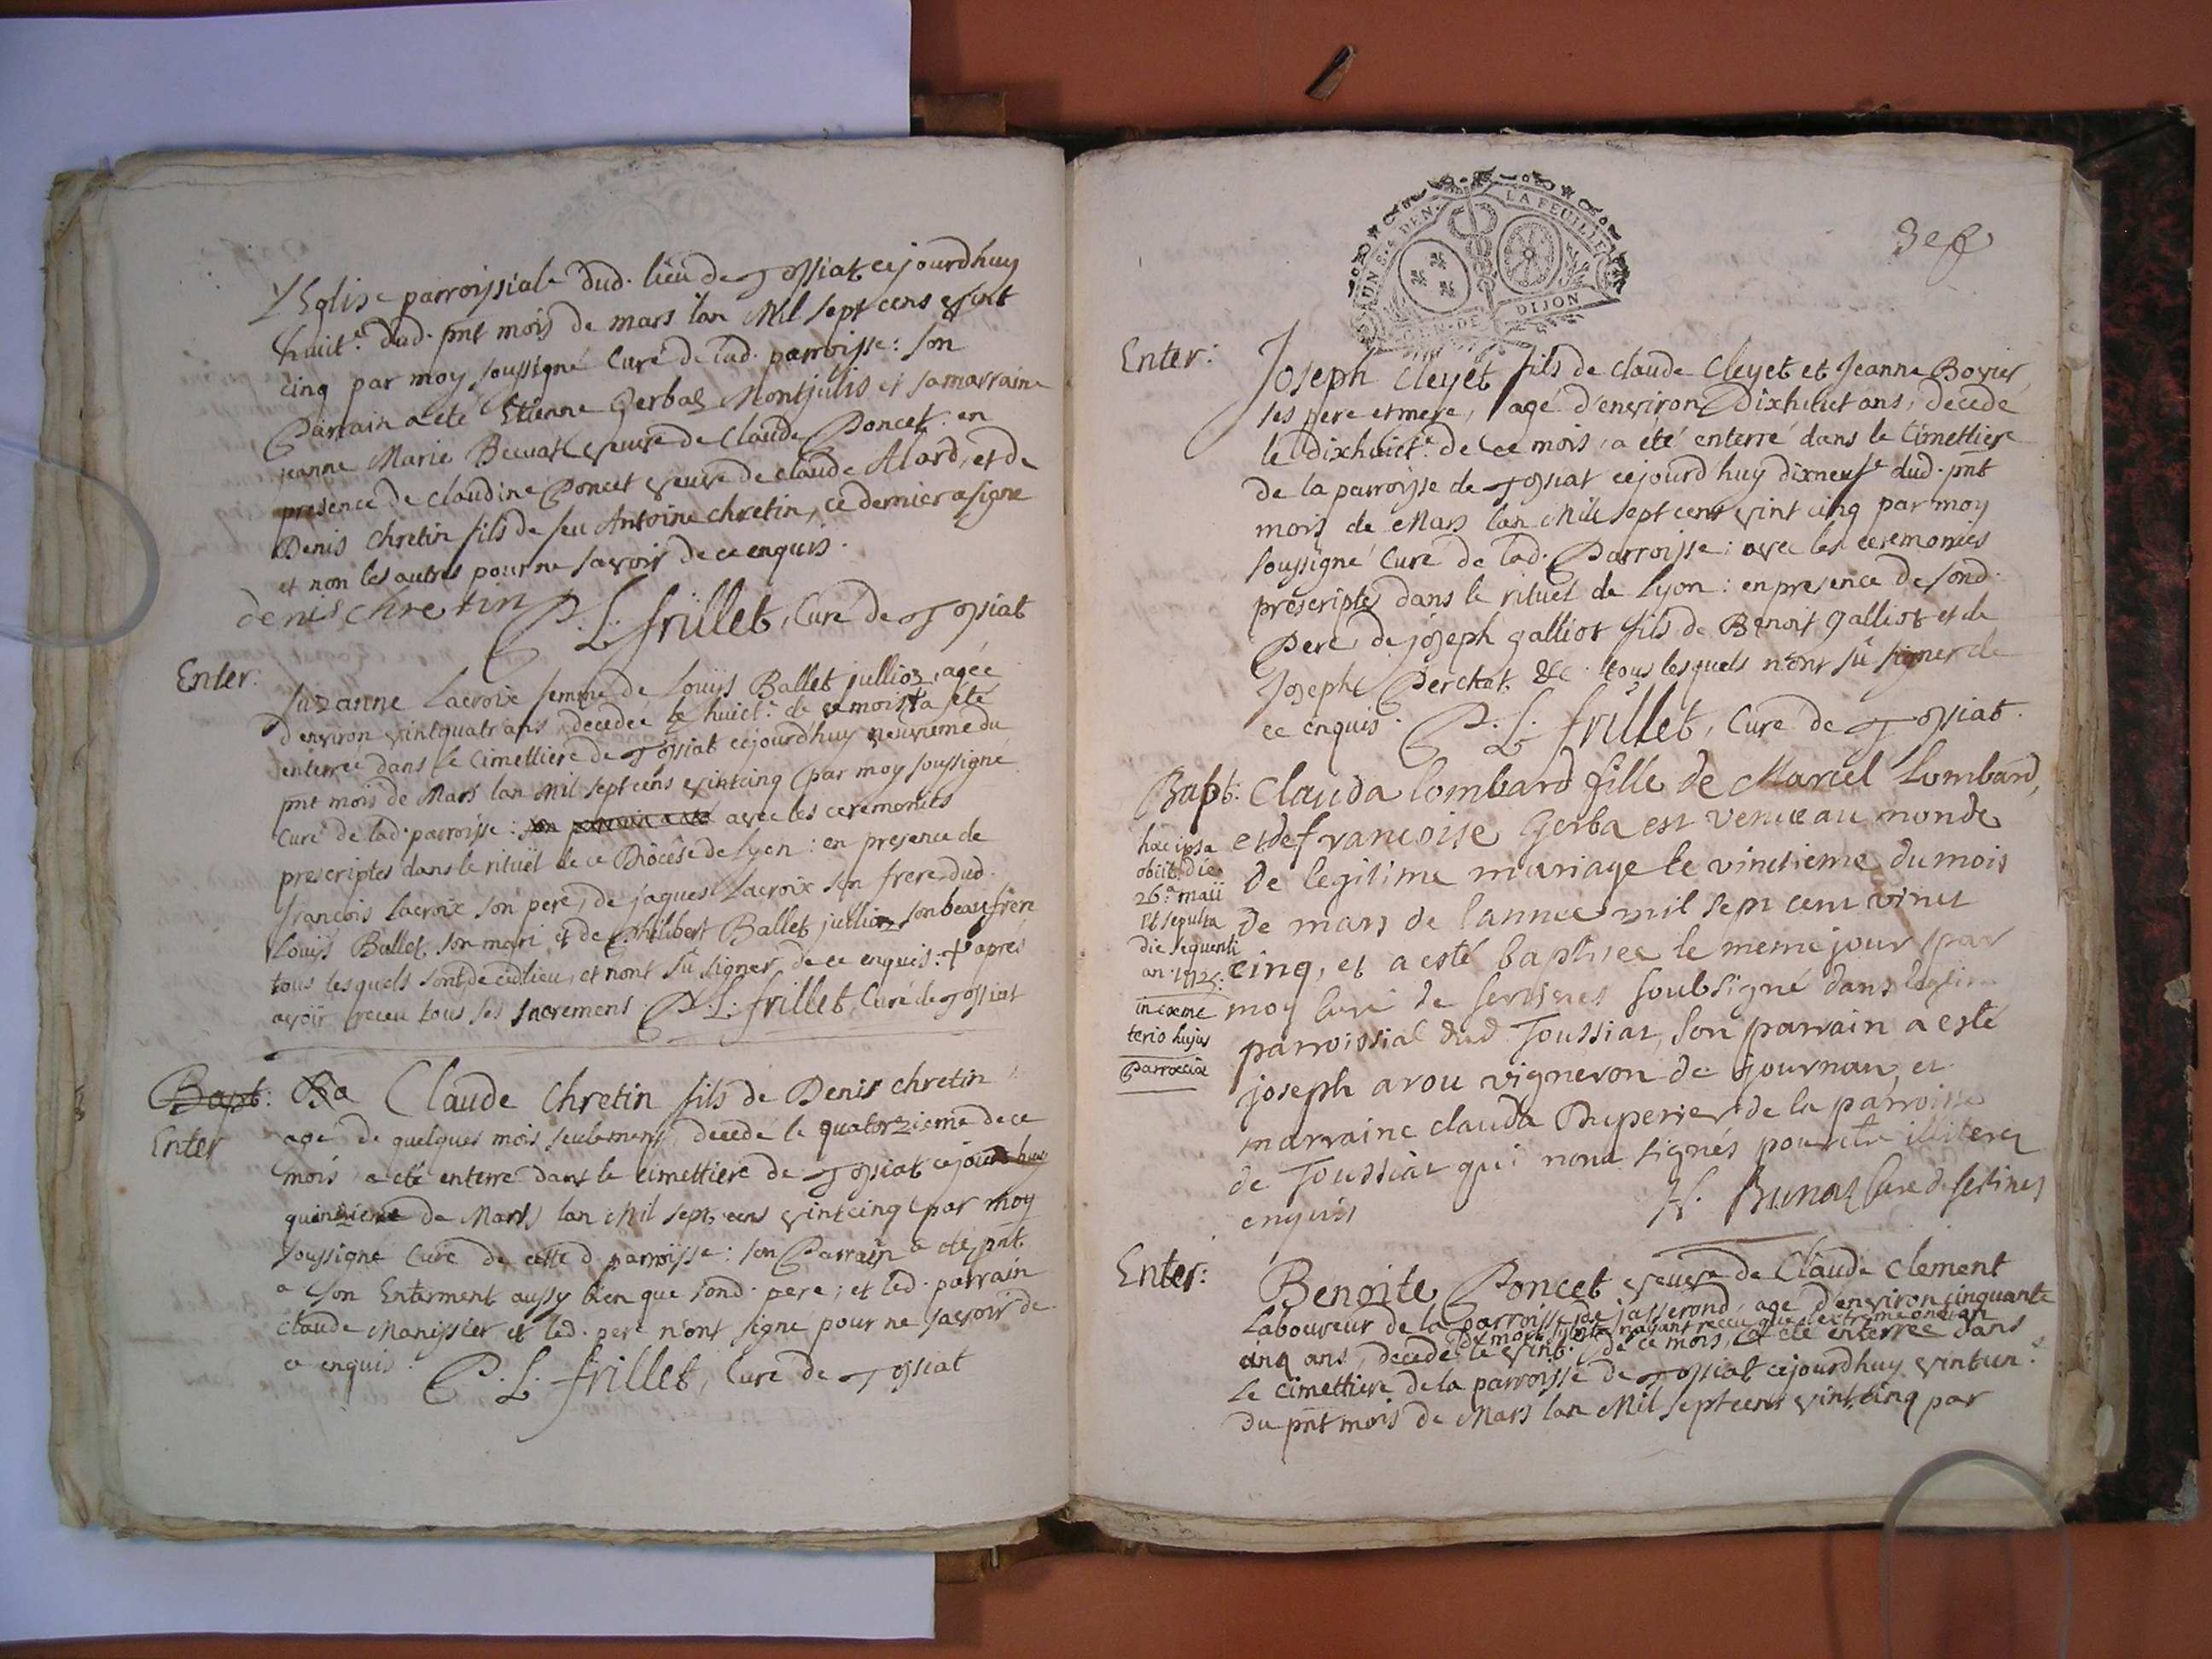 L'Eglise parroissiale dud. lieu de Tossiat cejourdhuy
huit.e dud. pnt mois de mars l'an Mil sept cens vint
cinq par moy soussigné Curé de lad. parroisse: son
Parrain a eté Etienne Gerbaz Montjulis et sa marraine
jeanne Marie veuve de Claude Poncet: en
presence de Claudine Poncet veuve de claude Alard, et de
Denis Chretin fils de feu Antoine chretin, ce dernier a signé
et non les autres pour ne savoir de ce enquis.
denis chretin P. L. frillet, Curé de Tossiat
Enter:
Suzanne Lacroix femme de Louÿs Ballet jullioz, agée
d'environ vintquatr'ans, decedée le huict.e de ce mois + a été
enterrée dans le Cimettiere de Tossiat cejourdhuy neuvieme du
pnt mois de Mars l'an Mil sept cens vintcinq par moy soussigné
Curé de lad. parroisse: son parrain a eté avec les ceremonies
prescriptes dans le rituël de ce Diôcêse de Lyon: en presence de
françois Lacroix son pere, de jaques Lacroix son frere, dud.
Louÿs Ballet son mari et de Philibert Ballet jullioz son beaufrere
tous lesquels sont de cedlieu, et n'ont sû signer de ce enquis: + aprés
avoir receu tous ses Sacremens. P. L. frillet, Curé de Tossiat
Bapt: Ba Claude Chretin fils de Denis chretin
Enter agé de quelques mois seulement, decedé le quatorzieme de ce
mois, a eté enterré dans le cimettiere de Tossiat cejourdhuy
quinzieme de Mars l'an Mil sept cens vintcinq par moy
soussigné Curé de cette d. parroisse: son Parrain a eté pnt
a son Enterrment aussy bien que sond. pere; et led. parrain
claude Manissier et led. pere n'ont signé pour ne savoir de
ce enquis. P. L. frillet, Curé de Tossiat
UN S. 4 DEN. LA FEUILLE
GEN. DE DIJON
Enter: Joseph Cleyet fils de claude Cleyet et Jeanne Bovier
ses pere et mere, agé d'environ Dixhuict ans, decedé
le dixhuict.e de ce mois, a eté enterré dans le Cimettiere
de la parroisse de Tossiat cejourd'huy dixneuf.e dud. pnt
mois de Mars l'an Mil sept cens vint cinq par moy
soussigné Curé de lad. Parroisse: avec les ceremonies
prescriptes dans le rituel de Lyon: en presence de sond.
Pere, de joseph galliot fils de Benoit galliot et de
Joseph Perchet, &c. tous lesquels n'ont sû signer de
ce enquis. P. L. frillet, Curé de Tossiat.
Bapt: Clauda lombard fille de Marcel Lombard,
et de francoise Gerba est venue au monde
de legitime mariage le vinctieme du mois
de mars de l'annee mil sept cent vinct
cinq, et a esté baptisee le meme jour par
moy curé de soubsigné dans leglise
parroissial dud Toussiat, son parrain a esté
joseph arou vigneron de journan, et
marraine clauda Duperier de la parroisse
de Toussiat qui nont signés pour etre
enquis H. Curé de
hæc ipsa
obiit die
26.a maii
et sepulta
die sequenti
an. 1725:
in coeme
terio hujus
Parrociæ
Enter: Benoite Poncet veuve de Claude Clement
Laboureur de la parroisse de jasserond, agé d'environ cinquante
de mort subite n'ayant receu que l'extreme onction
cinq ans, decedé le vint.e de ce mois, a eté enterrée dans
le cimettiere de la parroisse de Tossiat cejourdhuy vintun.e
du pnt mois de Mars l'an Mil sept cens vint cinq par